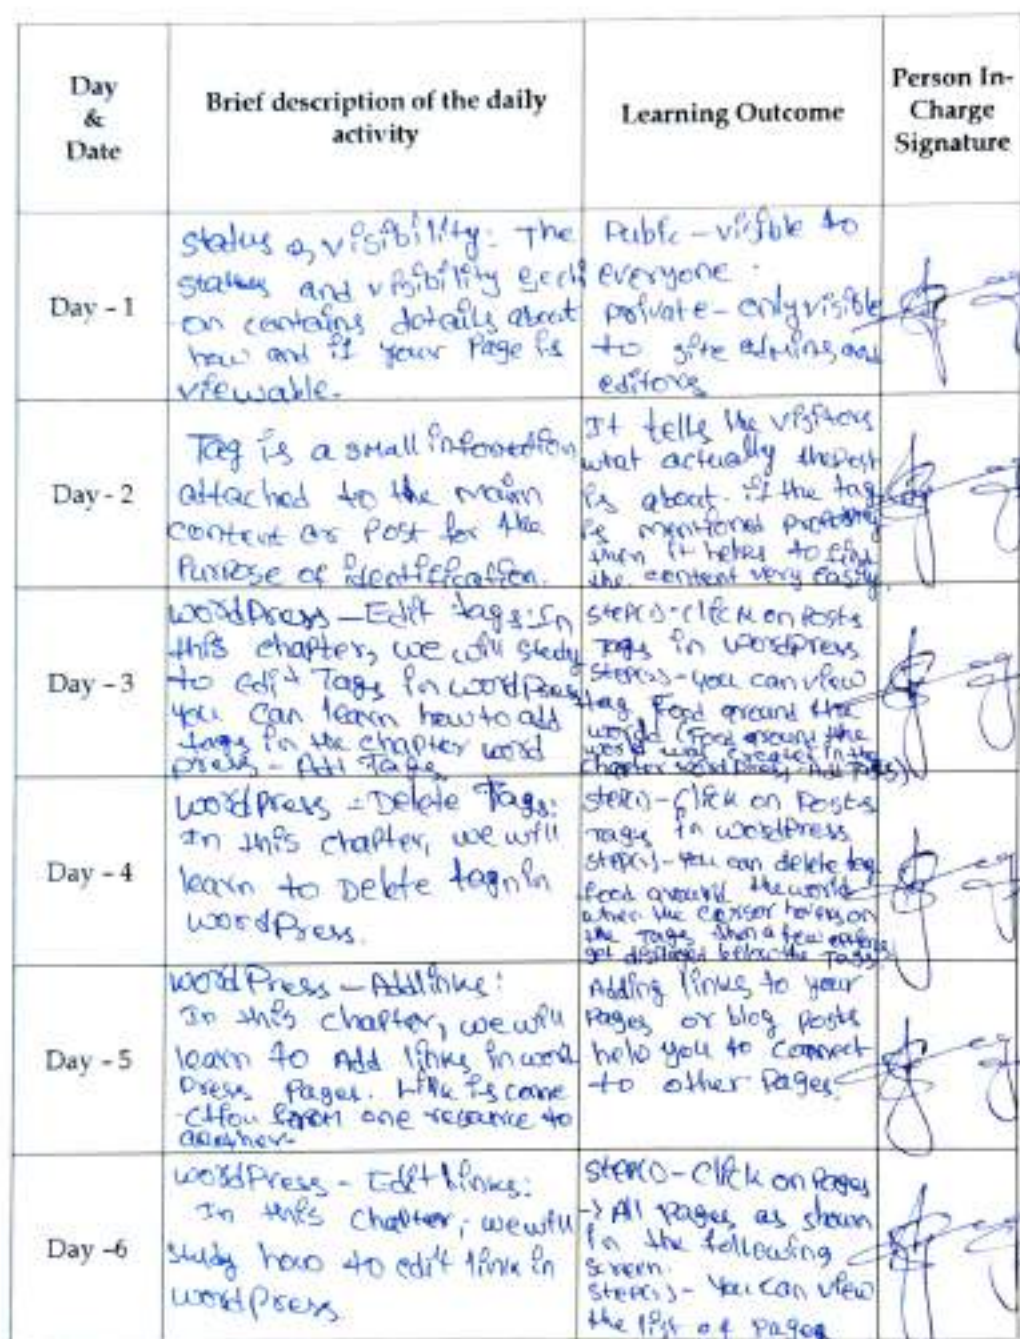 Day & Date
Brief description of the daily activity
Learning Outcome
Person In-Charge Signature
Day - 1
Status & visibility: The
status and visibility secti
on contains details about
how and if your Page is
viewable.
Public - visible to
everyone.
private - only visible
to site admins, and
editors
Day - 2
Tag is a small information
attached to the main
content or Post for the
Purpose of identification.
It tells the visitors
what actually the Post
is about. if the tag
is mentioned properly
then it helps to find
the content very easily.
Day - 3
WordPress - Edit tags: In
this chapter, we will study
to edit Tags in wordpress
you can learn how to add
tags in the chapter word
press - Add Tags
Step(1) - click on Posts
Tags in wordpress
- you can view
tag Food around the
world (Food around the
world was created in the
chapter wordPress - Add Tags)
Day - 4
wordpress - Delete Tags:
In this chapter, we will
learn to Delete in
wordPress.
Step(1) - Click on Posts
Tags in wordPress
- you can delete tag
food around the world
when the cursor hovers on
the Tags, then a few
get displayed below the Tags.
Day - 5
WordPress - Add links:
In this chapter, we will
learn to Add links in word
press pages. Link is conne
from one resource to
another.
Adding links to your
Pages or blog posts
help you to connect
to other Pages.
Day -6
wordPress - Edit Links:
In this Chapter, we will
study how to edit link in
wordPress
Step(1) - Click on Pages
-> All Pages, as shown
in the following
screen.
- You can view
the list of Pages